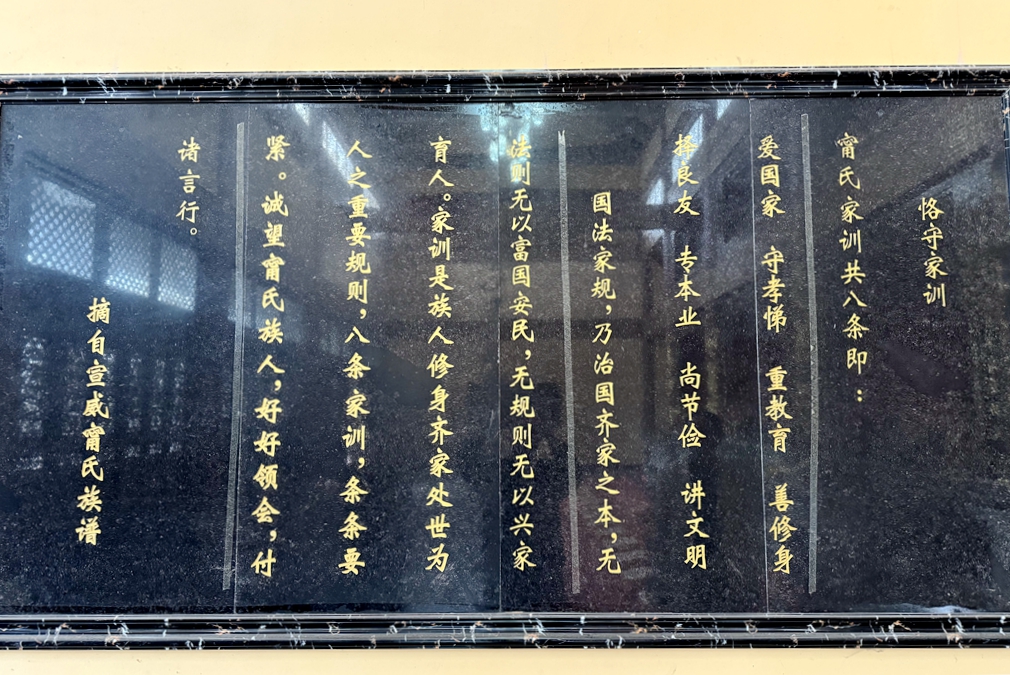 恪守家训
甯氏家训共八条即：
爱国家 守孝悌 重教育 善修身
择良友 专本业 尚节俭 讲文明
国法家规，乃治国齐家之本，无
法则无以富国安民，无规则无以兴家
育人。家训是族人修身齐家处世为
人之重要规则，八条家训，条条要
紧。诚望甯氏族人，好好领会，付
诸言行。
摘自宣威甯氏族谱